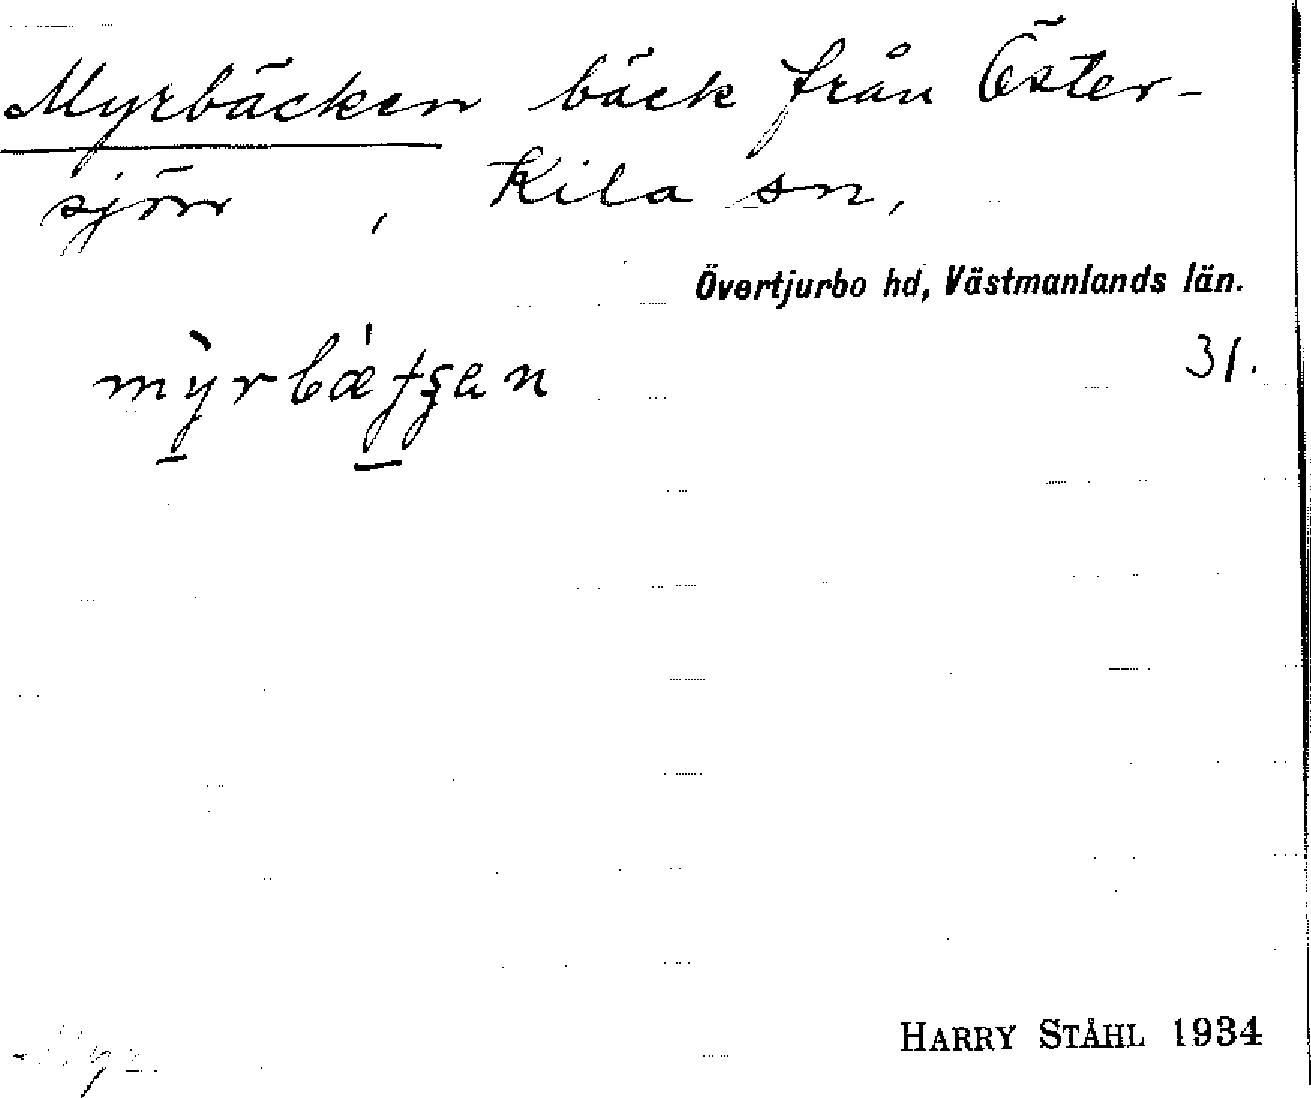 Myrbäcken bäck från Öster-
sjön, Kila sn,
Övertjurbo hd, Västmanlands län.
31.
HARRY STÅHL 1934